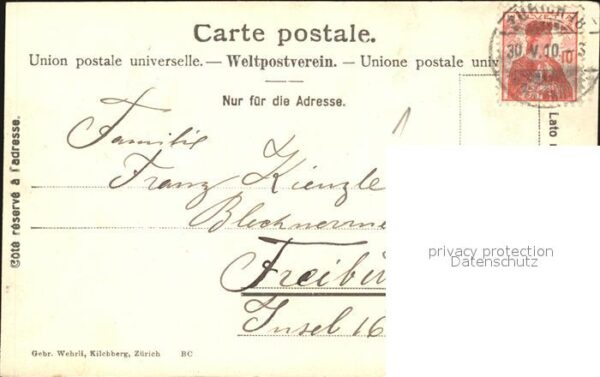 Carte postale.
Union postale universelle. — Weltpostverein. — Unione postale univ
Nur für die Adresse.
ZÜRICH 18
30. V. 10. - 3
10
Côté réservé à l'adresse.
Lato
Familie
Franz Kienzle
Blechnerme
Freibu
Insel 16
privacy protection
Datenschutz
Gebr. Wehrli, Kilchberg, Zürich BC